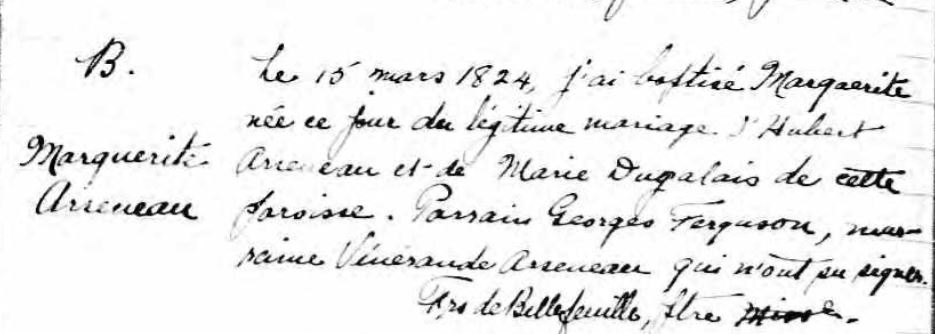 B.
Marguerite
Arseneau
Le 15 mars 1824, j'ai baptisé Marguerite
née ce jour du légitime mariage d'Hubert
Arseneau et de Marie Dugalais de cette
paroisse. Parrain Georges Ferguson, mar-
raine Vénérande Arseneau qui n'ont su signer.
Frs de Bellefeuille, Ptre